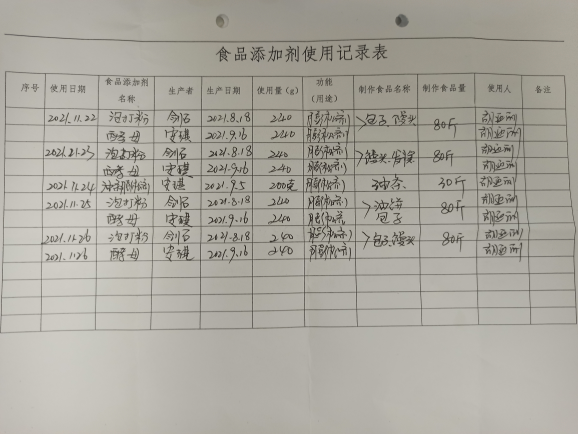 食品添加剂使用记录表
序号 使用日期 食品添加剂名称 生产者 生产日期 使用量(g) 功能(用途) 制作食品名称 制作食品量 使用人 备注
2021.11.22 泡打粉 剑石 2021.8.18 240 膨松剂 包子、馒头 80斤
酵母 安琪 2021.9.16 240 膨松剂
泡打粉 剑石 2021.8.18 240 膨松剂 馒头、 80斤
酵母 安琪 2021.9.16 240 膨松剂
2021.11.24 安琪 2021.9.5 200克 膨松剂 油条 30斤
2021.11.25 泡打粉 剑石 2021.8.18 240 膨松剂 包子 80斤
酵母 安琪 2021.9.16 240 膨松剂
2021.11.26 泡打粉 剑石 2021.8.18 240 膨松剂 包子、馒头 80斤
2021.11.26 酵母 安琪 2021.9.16 240 膨松剂